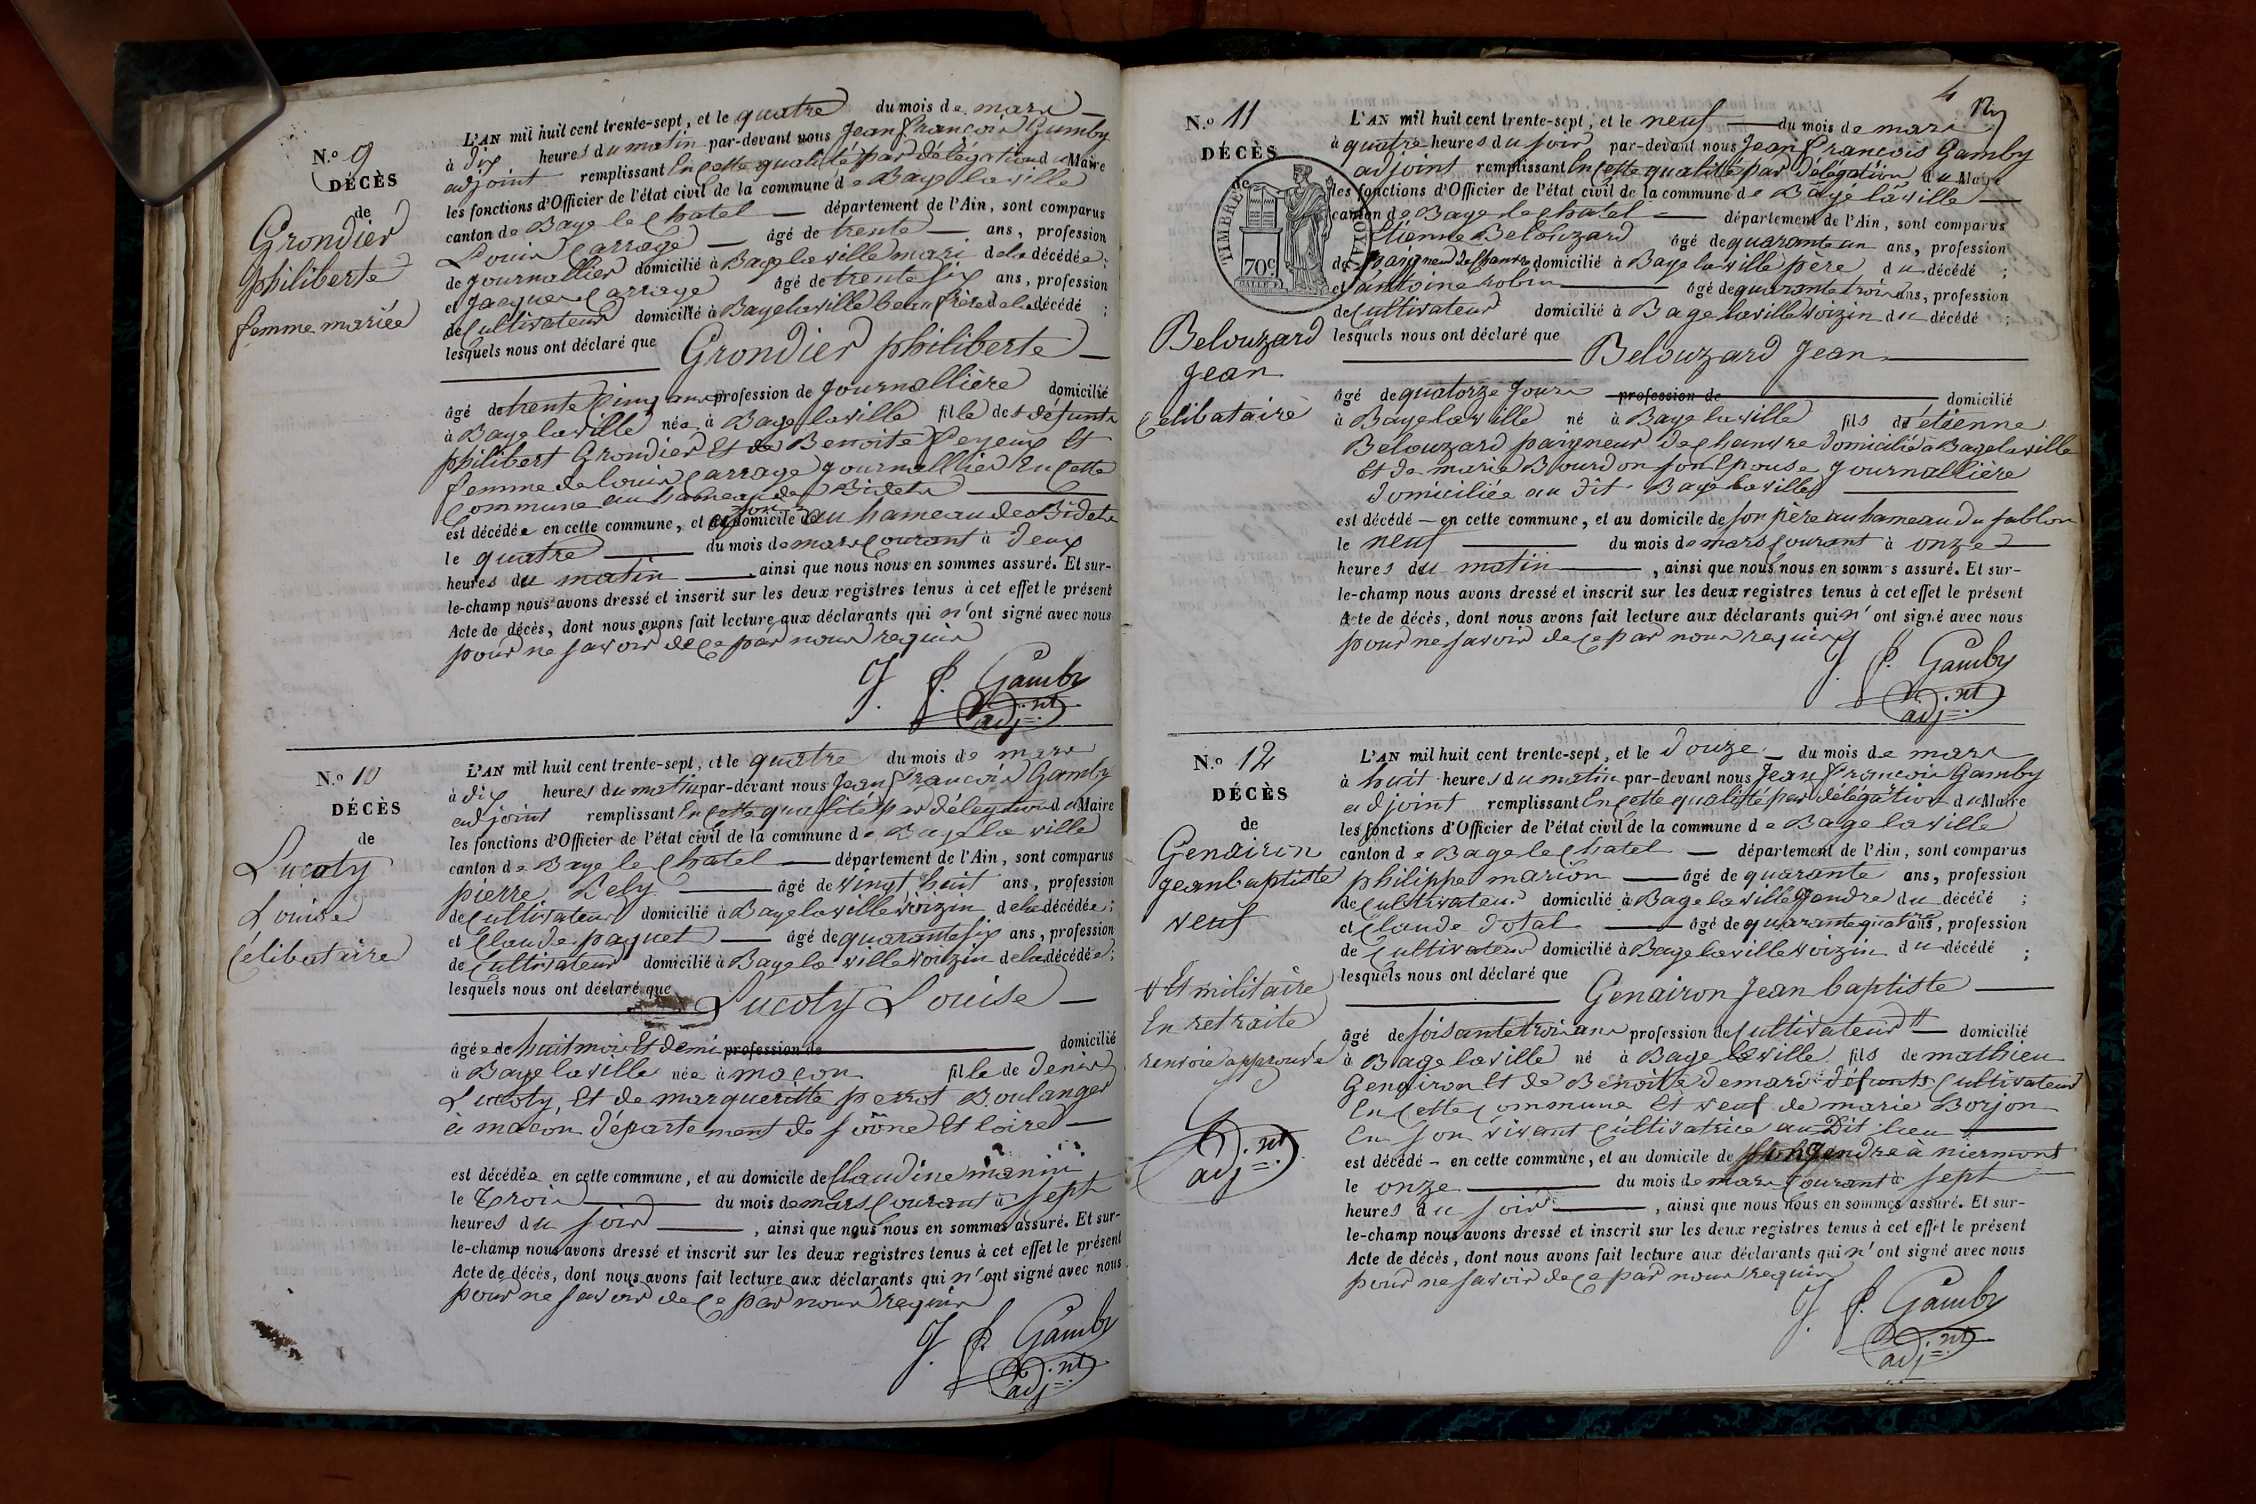 N.º 9
DÉCÈS
de
Grondier
philiberte
femme mariée
L'AN mil huit cent trente-sept, et le quatre du mois de mars
à dix heures du matin par-devant nous Jean françois Gamby
adjoint remplissant En cette qualité par délégation du Maire
les fonctions d'Officier de l'état civil de la commune de Bagé la ville
canton de Bage le chatel — département de l'Ain, sont comparus
Louis Carrage — âgé de trente — ans, profession
de journallier domicilié à Bage la ville mari de la décédée;
et Jacques Carrage âgé de trente six ans, profession
de Cultivateur domicilié à Bage la ville beau frère de la décédé ;
lesquels nous ont déclaré que Grondier philiberte —
âgé de trente Cinq ans profession de Journallière domicilié
à Bage la ville née à Bage la ville fille des défunts
philibert Grondier Et de Benoite feyeux Et
femme de louis Carrage journallier En Cette
Commune au hameau des Bidets
est décédée en cette commune, et au domicile au hameau des Bidets
le quatre — du mois de mars Courant à deux
heures du matin — ainsi que nous nous en sommes assuré. Et sur-
le-champ nous avons dressé et inscrit sur les deux registres tenus à cet effet le présent
Acte de décès, dont nous avons fait lecture aux déclarants qui n'ont signé avec nous
pour ne savoir de Ce par nous requis
J. f. Gamby
adj.nt
N.º 10
DÉCÈS
de
Lucoty
Louise
Célibataire
L'AN mil huit cent trente-sept, et le quatre du mois de mars
à dix heures du matin par-devant nous Jean françois Gamby
adjoint remplissant En cette qualité par délégation du Maire
les fonctions d'Officier de l'état civil de la commune de Bagé la ville
canton de Bage le Chatel — département de l'Ain, sont comparus
pierre Lely — âgé de vingt huit ans, profession
de Cultivateur domicilié à Bage la ville voizin de la décédée;
et Claude paquet — âgé de quarante six ans, profession
de Cultivateur domicilié à Bage la ville voizin de la décédée;
lesquels nous ont déclaré que Lucoty Louise —
âgée de huit mois Et demi profession de domicilié
à Bage la ville née à macon fille de Denis
Lucoty, Et de margueritte perrot Boulanger
à macon département de soône Et loire —
est décédée en cette commune, et au domicile de Claudine manin
le trois — du mois de mars Courant à sept
heures du soir — , ainsi que nous nous en sommes assuré. Et sur-
le-champ nous avons dressé et inscrit sur les deux registres tenus à cet effet le présent
Acte de décès, dont nous avons fait lecture aux déclarants qui n'ont signé avec nous
pour ne savoir de Ce par nous requis
J. f. Gamby
adj.nt
4
N.º 11
DÉCÈS
de
TIMBRE ROYAL
70c
Belouzard
Jean
Celibataire
L'AN mil huit cent trente-sept, et le neuf — du mois de mars
à quatre heures du soir par-devant nous Jean François Gamby
adjoint remplissant En cette qualité par délégation du Maire
les fonctions d'Officier de l'état civil de la commune de Bagé la ville —
canton de Bage le chatel — département de l'Ain, sont comparus
Etienne Belouzard âgé de quarante un ans, profession
de paigneur de chanvre domicilié à Bage la ville père du décédé ;
et antoine robin — âgé de quarante trois ans, profession
de Cultivateur domicilié à Bage la ville voizin du décédé ;
lesquels nous ont déclaré que
Belouzard Jean
âgé de quatorze Jours profession de domicilié
à Bage la ville né à Bage la ville fils d'étienne
Belouzard paigneur de Chanvre domicilié à Bage la ville
Et de marie Bourdon son Epouse Journallière
domiciliée au dit Bagé la ville
est décédé — en cette commune, et au domicile de son père au hameau du sablon
le neuf — du mois de mars Courant à onze —
heures du matin — , ainsi que nous nous en somm s assuré. Et sur-
le-champ nous avons dressé et inscrit sur les deux registres tenus à cet effet le présent
Acte de décès, dont nous avons fait lecture aux déclarants qui n'ont signé avec nous
pour ne savoir de Ce par nous requis
J. f. Gamby
adj.nt
N.º 12
DÉCÈS
de
Genairon
jean baptiste
veuf
# Et militaire
En retraite
renvoie approuvé
adj.nt
L'AN mil huit cent trente-sept, et le douze — du mois de mars
à huit heures du matin par-devant nous Jean françois Gamby
adjoint remplissant En cette qualité par délégation du Maire
les fonctions d'Officier de l'état civil de la commune de Bage la ville
canton de Bage le Chatel — département de l'Ain, sont comparus
philippe marion — âgé de quarante ans, profession
de Cultivateur domicilié à Bage la ville Gendre du décédé ;
et Claude dotal — âgé de quarante quatre ans, profession
de Cultivateur domicilié à Bage la ville voizin du décédé ;
lesquels nous ont déclaré que
Genairon Jean baptiste
âgé de soisante trois ans profession de Cultivateur # — domicilié
à Bage la ville né à Bage la ville fils de mathieu
Genairon Et de Benoite demard défunts Cultivateurs
En Cette Commune Et veuf de marie Borjon
En son vivant Cultivatrice au Dit lieu
est décédé — en cette commune, et au domicile de son Gendre à niermont
le onze — du mois de mars Courant à sept
heures du soir — , ainsi que nous nous en sommes assuré. Et sur-
le-champ nous avons dressé et inscrit sur les deux registres tenus à cet effet le présent
Acte de décès, dont nous avons fait lecture aux déclarants qui n'ont signé avec nous
pour ne savoir de Ce par nous requis
J. f. Gamby
adj.nt